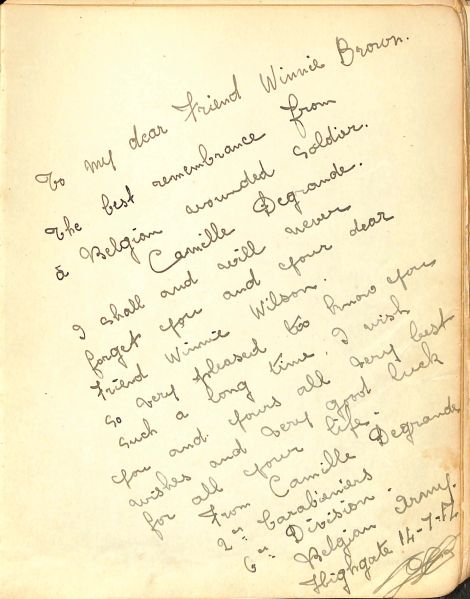 To my dear Friend Winnie Brown.
The best remembrance from
a Belgian wounded soldier.
Camille Degrande.
I shall and will never
forget you and your dear
Friend Winnie Wilson.
so very pleased too know you
such a long time. I wish
you and yours all very best
wishes and very good luck
for all your life.
From Camille Degrande
2es Carabeniers
6es Division.
Belgian Army.
Highgate 14-7-17